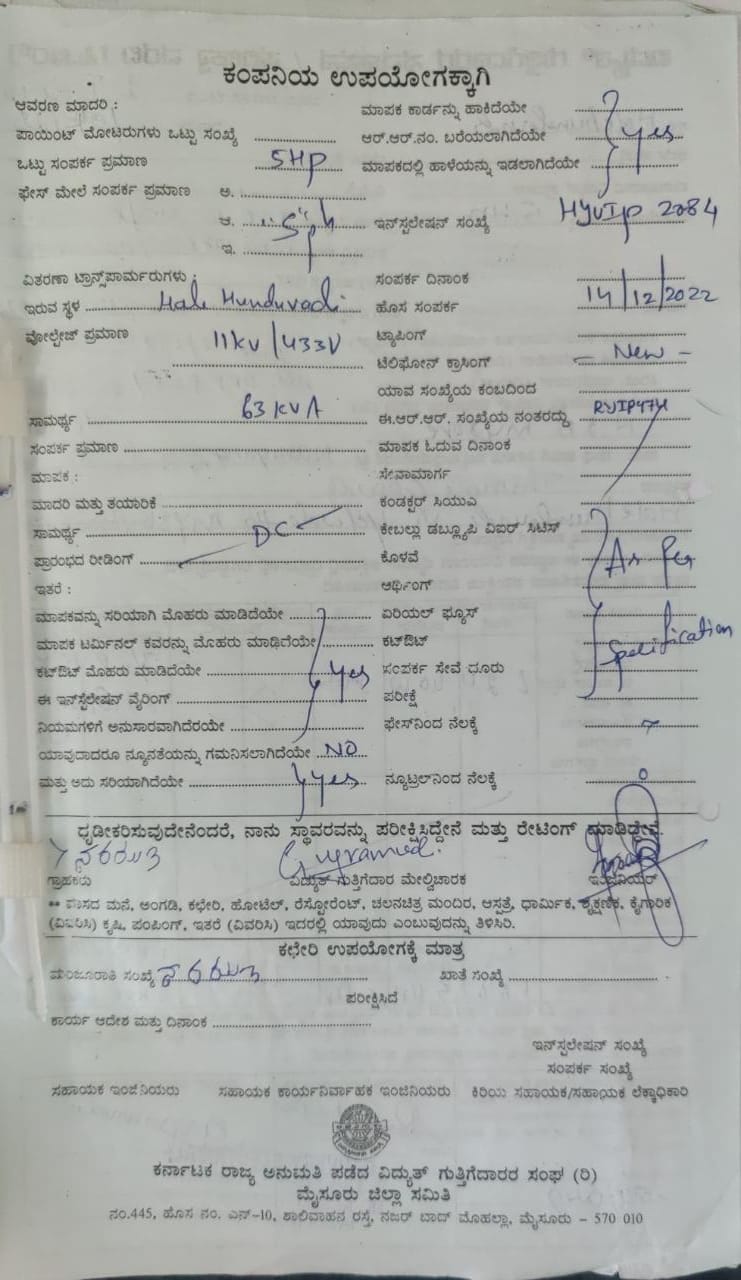 ಕಂಪನಿಯ ಉಪಯೋಗಕ್ಕಾಗಿ
ಆವರಣ ಮಾದರಿ : ಮಾಪಕ ಕಾರ್ಡನ್ನು ಹಾಕಿದೆಯೇ
ಪಾಯಿಂಟ್ ಮೋಟರುಗಳು ಒಟ್ಟು ಸಂಖ್ಯೆ ಆರ್.ಆರ್.ನಂ. ಬರೆಯಲಾಗಿದೆಯೇ yes
ಒಟ್ಟು ಸಂಪರ್ಕ ಪ್ರಮಾಣ 5HP ಮಾಪಕದಲ್ಲಿ ಹಾಳೆಯನ್ನು ಇಡಲಾಗಿದೆಯೇ
ಫೇಸ್ ಮೇಲೆ ಸಂಪರ್ಕ ಪ್ರಮಾಣ ಅ.
ಆ. ಇನ್‌ಸ್ಟಲೇಷನ್ ಸಂಖ್ಯೆ HYVIP 2084
ಇ.
ವಿತರಣಾ ಟ್ರಾನ್ಸ್‌ಪಾರ್ಮರುಗಳು : ಸಂಪರ್ಕ ದಿನಾಂಕ
ಇರುವ ಸ್ಥಳ Hale Hunduvadi ಹೊಸ ಸಂಪರ್ಕ 14/12/2022
ವೋಲ್ಟೇಜ್ ಪ್ರಮಾಣ 11kv/433V ಟ್ಯಾಪಿಂಗ್
ಟೆಲಿಫೋನ್ ಕ್ರಾಸಿಂಗ್ - New -
ಯಾವ ಸಂಖ್ಯೆಯ ಕಂಬದಿಂದ
ಸಾಮರ್ಥ್ಯ 63 KVA ಈ.ಆರ್.ಆರ್. ಸಂಖ್ಯೆಯ ನಂತರದ್ದು
ಸಂಪರ್ಕ ಪ್ರಮಾಣ ಮಾಪಕ ಓದುವ ದಿನಾಂಕ
ಮಾಪಕ : ಸೇವಾಮಾರ್ಗ
ಮಾದರಿ ಮತ್ತು ತಯಾರಿಕೆ ಕಂಡಕ್ಟರ್ ಸಿಯುಎ
ಸಾಮರ್ಥ್ಯ DC ಕೇಬಲ್ಲು ಡಬ್ಲ್ಯೂಪಿ ವಿಐರ್ ಸಿಟಿಸ್
ಪ್ರಾರಂಭದ ರೀಡಿಂಗ್ ಕೊಳವೆ As per
ಇತರೆ : ಆರ್ಥಿಂಗ್
ಮಾಪಕವನ್ನು ಸರಿಯಾಗಿ ಮೊಹರು ಮಾಡಿದೆಯೇ ಏರಿಯಲ್ ಫ್ಯೂಸ್
ಮಾಪಕ ಟರ್ಮಿನಲ್ ಕವರನ್ನು ಮೊಹರು ಮಾಡಿದೆಯೇ ಕಟ್‌ಔಟ್ Spelification
ಕಟ್‌ಔಟ್ ಮೊಹರು ಮಾಡಿದೆಯೇ yes ಸಂಪರ್ಕ ಸೇವೆ ಧೂರು
ಈ ಇನ್‌ಸ್ಟಲೇಷನ್ ವೈರಿಂಗ್ ಪರೀಕ್ಷೆ
ನಿಯಮಗಳಿಗೆ ಅನುಸಾರವಾಗಿದೆರಯೇ ಫೇಸ್‌ನಿಂದ ನೆಲಕ್ಕೆ
ಯಾವುದಾದರೂ ನ್ಯೂನತೆಯನ್ನು ಗಮನಿಸಲಾಗಿದೆಯೇ NO
ಮತ್ತು ಅದು ಸರಿಯಾಗಿದೆಯೇ yes ನ್ಯೂಟ್ರಲ್‌ನಿಂದ ನೆಲಕ್ಕೆ 0
ಧೃಡೀಕರಿಸುವುದೇನೆಂದರೆ, ನಾನು ಸ್ಥಾವರವನ್ನು ಪರೀಕ್ಷಿಸಿದ್ದೇನೆ ಮತ್ತು ರೇಟಿಂಗ್ ಮಾಡಿದ್ದೇನೆ.
ಗ್ರಾಹಕರು ವಿದ್ಯುತ್ ಗುತ್ತಿಗೆದಾರ ಮೇಲ್ವಿಚಾರಕ ಇಂಜಿನಿಯರ್
** ವಾಸದ ಮನೆ, ಅಂಗಡಿ, ಕಛೇರಿ, ಹೋಟೆಲ್, ರೆಸ್ಟೋರೆಂಟ್, ಚಲನಚಿತ್ರ ಮಂದಿರ, ಆಸ್ಪತ್ರೆ, ಧಾರ್ಮಿಕ, ಶೈಕ್ಷಣಿಕ, ಕೈಗಾರಿಕ
(ವಿವರಿಸಿ) ಕೃಷಿ, ಪಂಪಿಂಗ್, ಇತರೆ (ವಿವರಿಸಿ) ಇದರಲ್ಲಿ ಯಾವುದು ಎಂಬುವುದನ್ನು ತಿಳಿಸಿರಿ.
ಕಛೇರಿ ಉಪಯೋಗಕ್ಕೆ ಮಾತ್ರ
ಮಂಜೂರಾತಿ ಸಂಖ್ಯೆ ಖಾತೆ ಸಂಖ್ಯೆ
ಪರೀಕ್ಷಿಸಿದೆ
ಕಾರ್ಯ ಆದೇಶ ಮತ್ತು ದಿನಾಂಕ
ಇನ್‌ಸ್ಟಲೇಷನ್ ಸಂಖ್ಯೆ
ಸಂಪರ್ಕ ಸಂಖ್ಯೆ
ಸಹಾಯಕ ಇಂಜಿನಿಯರು ಸಹಾಯಕ ಕಾರ್ಯನಿರ್ವಾಹಕ ಇಂಜಿನಿಯರು ಕಿರಿಯ ಸಹಾಯಕ/ಸಹಾಯಕ ಲೆಕ್ಕಾಧಿಕಾರಿ
ಕರ್ನಾಟಕ ರಾಜ್ಯ ಅನುಮತಿ ಪಡೆದ ವಿದ್ಯುತ್ ಗುತ್ತಿಗೆದಾರರ ಸಂಘ (ರಿ)
ಮೈಸೂರು ಜಿಲ್ಲಾ ಸಮಿತಿ
ನಂ.445, ಹೊಸ ನಂ. ಎನ್-10, ಶಾಲಿವಾಹನ ರಸ್ತೆ, ನಜರ್ ಬಾದ್ ಮೊಹಲ್ಲಾ, ಮೈಸೂರು - 570 010